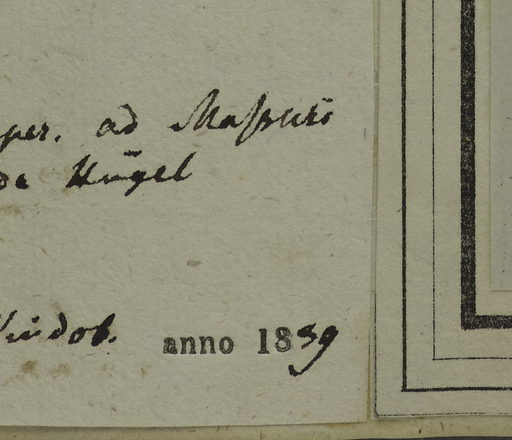 per. ad Massuri
de Hügel
Vindob. anno 1839